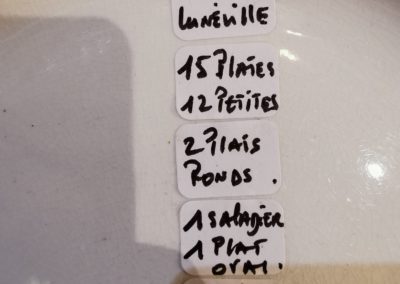 LUNÉVILLE
15 PLATES
12 PETITES
2 PLAIS
RONDS.
1 SALADIER
1 PLAT
OVAL.